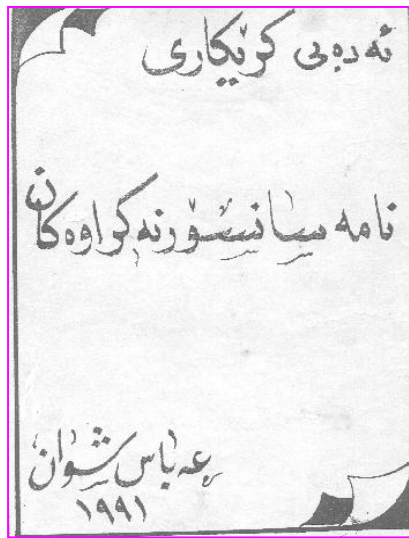 ئەدەبی کرێکاری
نامە سانسۆرنەکراوەکان
عەباس شوان
١٩٩١